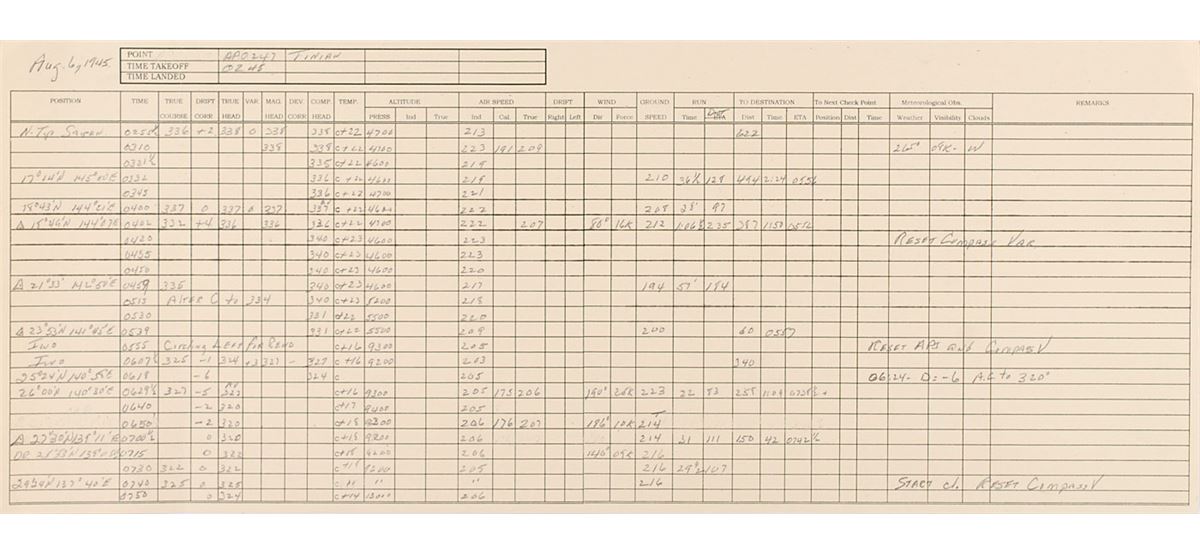 Aug. 6, 1945
POINT APO 247 TINIAN
TIME TAKEOFF 0245
TIME LANDED
POSITION TIME TRUE COURSE DRIFT CORR TRUE HEAD VAR. MAG. HEAD DEV. CORR. COMP. HEAD TEMP. ALTITUDE PRESS Ind True AIR SPEED Ind Cal. True DRIFT Right Left WIND Dir Force GROUND SPEED RUN Time Dist ETA TO DESTINATION Dist Time ETA To Next Check Point Position Dist Time Meteorological Obs. Weather Visibility Clouds REMARKS
N. Tip Saipan 0255½ 336 +2 338 0 338 338 C+22 4700 213 622
0310 338 338 C+22 4700 223 191 209 265° 09K - W
0321½ 335 C+22 4600 219
17°14'N 145°00'E 0332 336 C+22 4600 219 210 36½ 128 494 2:24 0556
0345 336 C+22 4700 221
18°43'N 144°21'E 0400 337 0 337 0 337 337 C+22 4600 222 208 28' 97
Δ 18°46'N 144°07'E 0402 332 +4 336 336 336 C+22 4700 222 207 80° 16K 212 1:06½ 235 387 1:50 0552
0420 340 C+23 4600 223 RESET COMPASS VAR.
0435 340 C+23 4600 223
0450 340 C+23 4600 220
Δ 21°33' 142°50'E 0459 335 340 C+23 4600 217 194 57' 184
0513 Alter C to 334 340 C+23 5200 218
0530 331 C+22 5500 220
Δ 23°53'N 141°45'E 0539 331 C+22 5500 209 200 60 0557
Iwo 0555 Circling Left for Rend C+16 9300 205 RESET API and COMPASS V
Iwo 0607½ 325 -1 324 +3 327 - 327 C+16 9200 203 340
25°24'N 140°55'E 0618 -6 324 C 205 06:24- D=-6 A.C. to 320°
26°00'N 140°30'E 0629½ 327 -5 322 C+16 9300 205 175 206 190° 20K 223 22 83 258 1:09 0738½
0640 -2 320 C+17 9400 205
0650 -2 320 C+18 9300 206 176 207 186° 10K 214
Δ 27°30'N 139°11'E 0700½ 0 320 C+18 9200 206 214 31 111 150 42 0742½
DR 0715 0 322 C+18 9200 206 140° 09K 216
0730 322 0 322 C+18 9200 205 216 29½ 107
29°29'N 137°40'E 0740 325 0 325 C+11 " " 216 START cl. RESET COMPASS V
0750 0 324 C+14 206